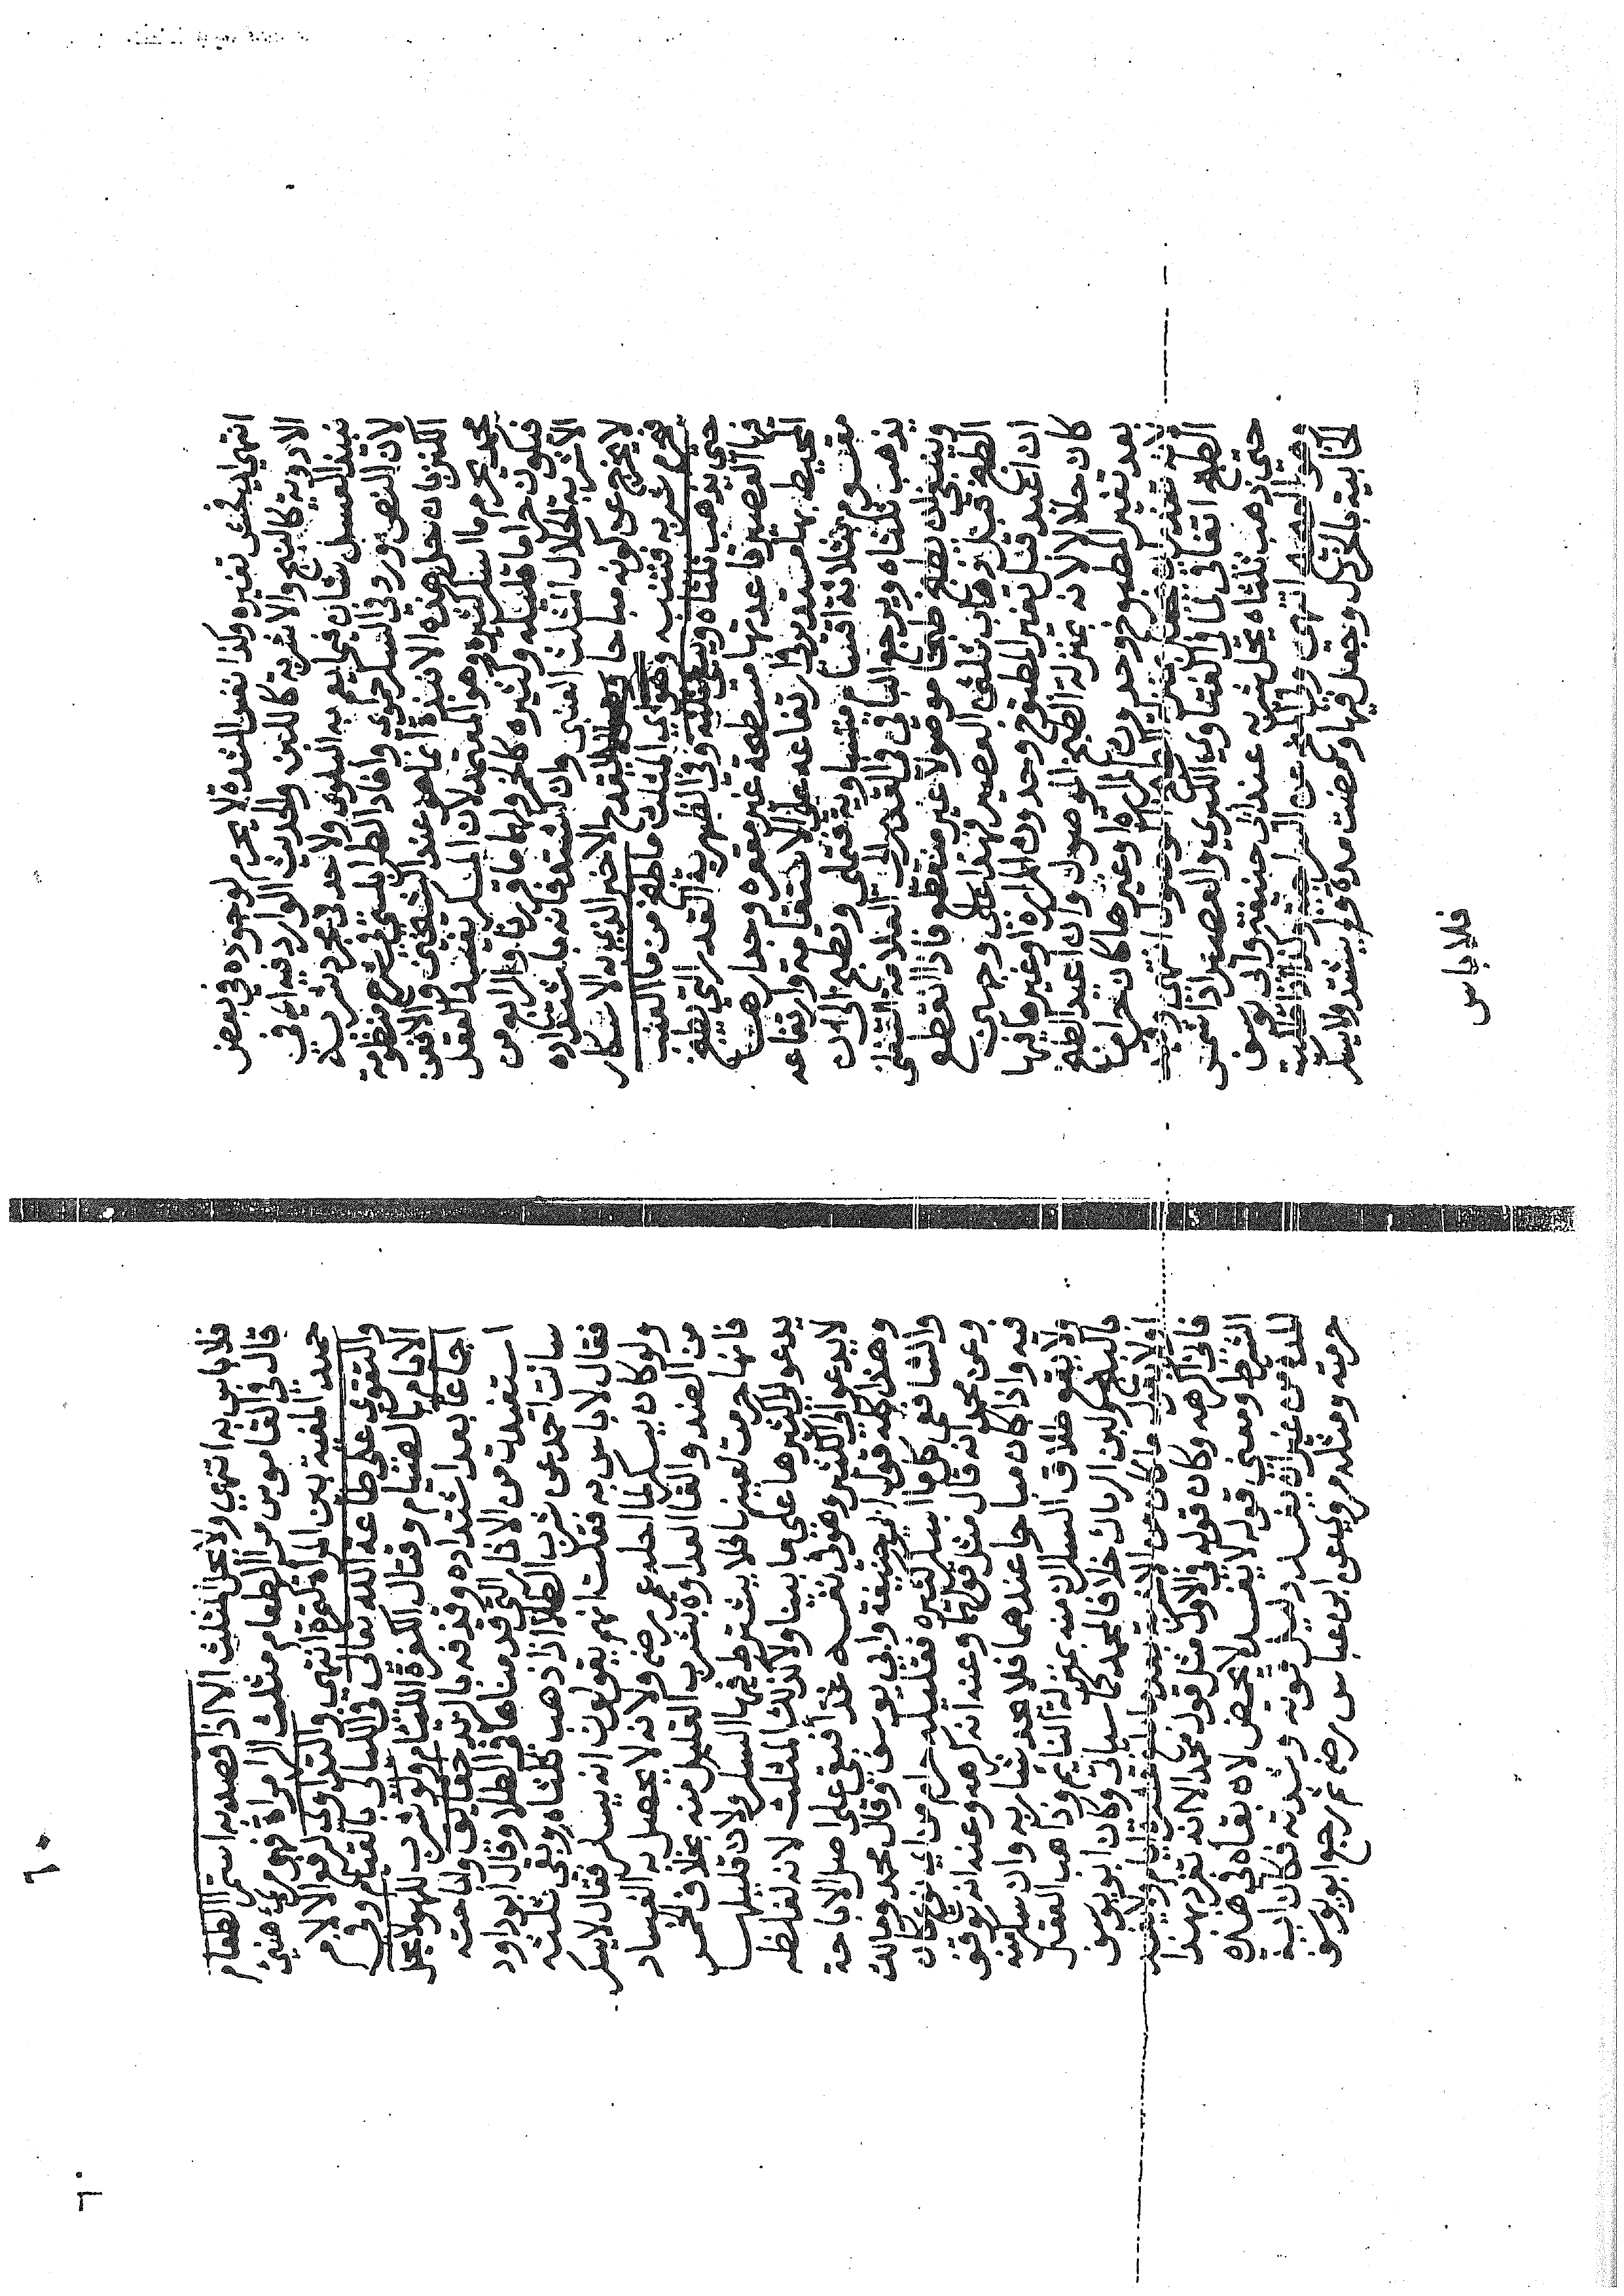 انتهى اي فحش تغيره وكذا نفس الشدة لا يحرم لوجوده في بعض
الادوية كالبنج والاشربة كاللبن والحديث الوارد فيه اي في
نبيذ العسل شان فيما يعم به البلوى ولا حد في مجرد شربه
لان النص ورد في السكر حموي وافاد الطرابلسي في شرح منظومة
الكنز بان حل هذه الانبذة انما هو عند الشيخين والا فعن
محمد يحرم ما اسكر كثيره وهو المعتمد لان المسكر يفسد العقل
فيكون حراما قليله وكثيره كالخمر ولها ما قررنا والرابع من
الاشربة الحلال المثلث العنبي وان اشتد فانه باشتداده
لا يخرج عن كونه مباحا القدح الاخير الذي به الاسكار
فيحرم شربه فتنبه وهو اي المثلث ما طبخ من ما العنب
حتى يذهب ثلثاه ويبقى ثلثه وفي الظهيرية القدر التي يطبخ
فيها العصير قاعدتها مسطحة غير مقعرة وجدارها
المحيط بها مستدير في ارتفاعه على الاستقامة وارتفاعه
مقسوم بثلاثة اقسام متساوية فتملى وتطبخ الى ان
يذهب ثلثاه ويرجع الباقي في القدر الى العلامة السفلى
وينبغي ان يطبخ طبخا موصولا غير منقطع فاذا انقطع
الطبخ قبل ذهاب ثلثي العصير فهذا على وجهين
ان اعيد قبل تغير المطبوخ وحدوث المرارة وغيرها فيها
كان حلالا لانه بمنزلة الطبخ الموصول وان اعيد الطبخ
بعد تغير المطبوخ وحدوث المرارة وغيرها كان حراما
الطبخ اتفاقي لما في الفتاوى الكبرى والعصير اذا شمس
حتى ذهب ثلثاه يحل شربه عند ابي حنيفة وابي يوسف
وهو الصحيح انتهى
الخابية بالخردل وجعل فيها ومضت مدة ولم يشتد ولا يسكر
فلا باس
فلا باس به انتهى ولا يحل المثلث الا اذا قصد به استمرا الطعام
قال في القاموس مرا الطعام مثلث الرا مراة فهو مري هنيئ
حميد المغبة بين المراة كتمرة انتهى والتداوي لرفع الالام
والتقوي على طاعة الله تعالى في الليالي بالقيام وفي
الايام بالصيام وقتال الكفرة اللئام ولو شرب للهو لا يحل
اجماعا بعد اشتداده وقذفه بالزبد حقايق واباحته
استفيدت من الاثار التي قدمناها في الطلا وقال ابو داود
سالت احمد عن شرب الطلا اذا ذهب ثلثاه وبقي ثلثه
فقال لا باس به فقلت انهم يقولون انه يسكر فقال لا يسكر
ولو كان يسكر لما احله عمر رضه ولانه لا يحصل به الفساد
من الصد والقا العداوة بشرب القليل منه بخلاف الخمر
فانها حرمت لعينها فلا يشترط فيها السكر ولان قليلها
يدعو الى كثيرها على ما بينا ولا كذلك المثلث لانه لغلظه
لا يدعو الى الكثير وهو في نفسه غذا فبقي على اصل الاباحة
وهذا كله قول ابي حنيفة وابي يوسف وقال محمد ومالك
والشافعي كل ما اسكر كثيره فقليله حرام من اي نوع كان
وعن محمد انه قال مثل قولهما وعنه انه كرهه وعنه انه توقف
فيه واذا كان مباحا عندهما فلا يحد شاربه وان سكر منه
ولا يقع طلاق السكران منه بمنزلة النايم وذاهب العقل
بالبنج ولبن الرماك خلافا لمحمد كما سياتي وكان ابو يوسف
اولا يقول ما كان من الاشربة
فاني اكرهه وكان قوله في الاول مثل قول محمد الا انه تفرد بهذا
الشرط ومعنى قوله لا يفسد لا يحمض لان بقاءه في هذه
المدة من غير ان يفسد دليل قوته وشدته فكان اية
حرمته ومثله مروي عن ابن عباس رضه ثم رجع ابو يوسف
٦٠